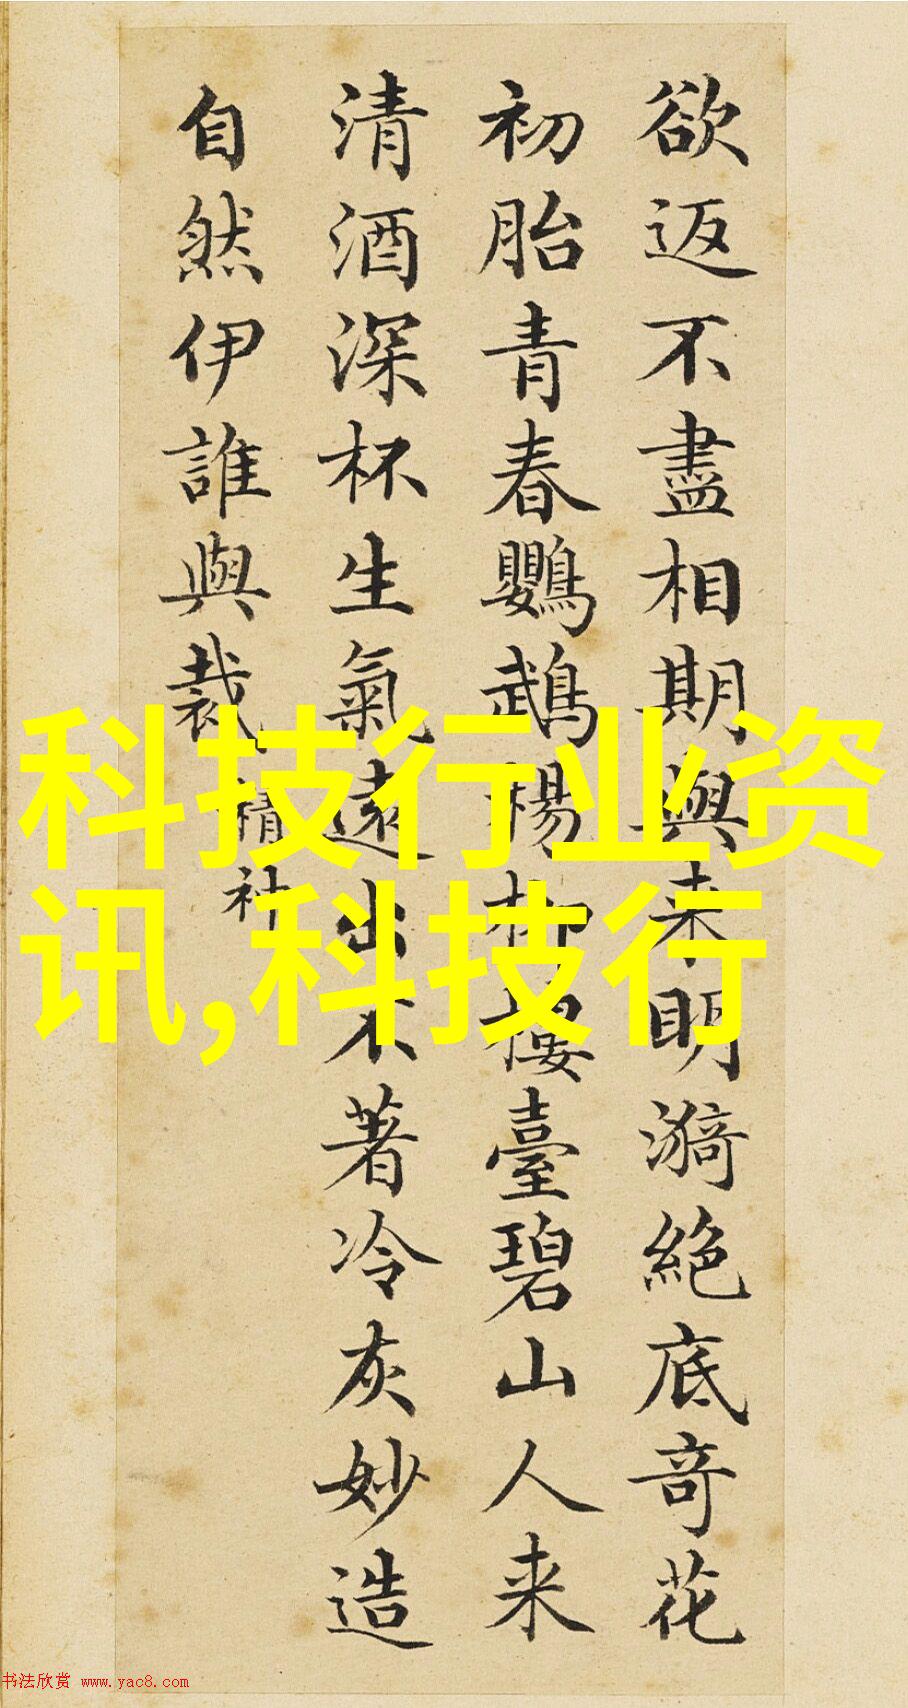 欲返不盡相期與来明漪絕底奇花
初胎青春鸚鵡楊柳樓臺碧山人来
清酒深杯生氣遠出不著冷灰妙造
自然伊誰與裁
精神
科技行业资
讯,科技行
书法欣赏 www.yac8.com